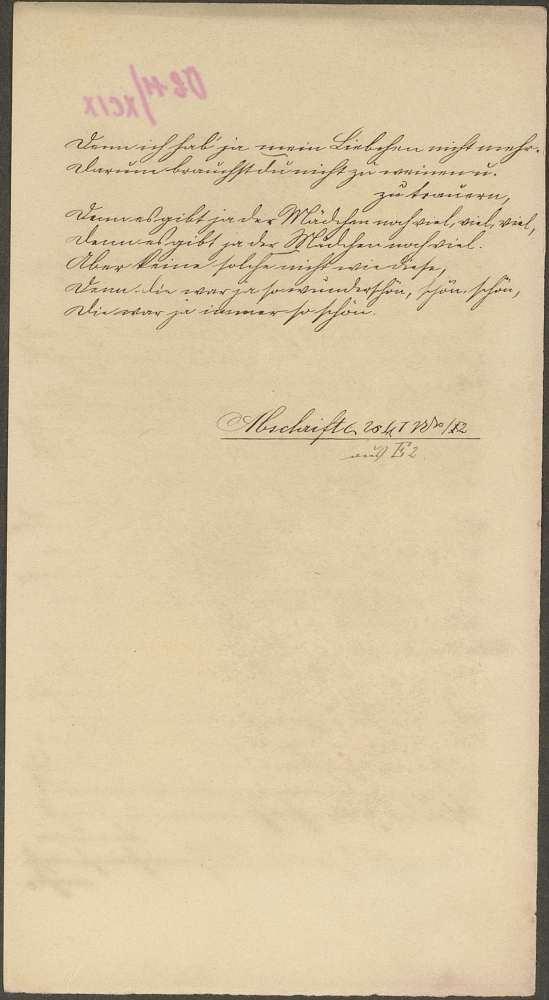 Denn ich hab' ja mein Liebchen nicht mehr.
Darum brauchst du nicht zu weinen u.
zu trauern,
Denn es gibt ja der Mädchen noch viel, viel, viel,
Denn es gibt ja der Mädchen noch viel.
Aber keine solche nicht wie diese,
Denn die war ja so wunderschön, schön, schön,
Die war ja immer so schön.
Abschrift